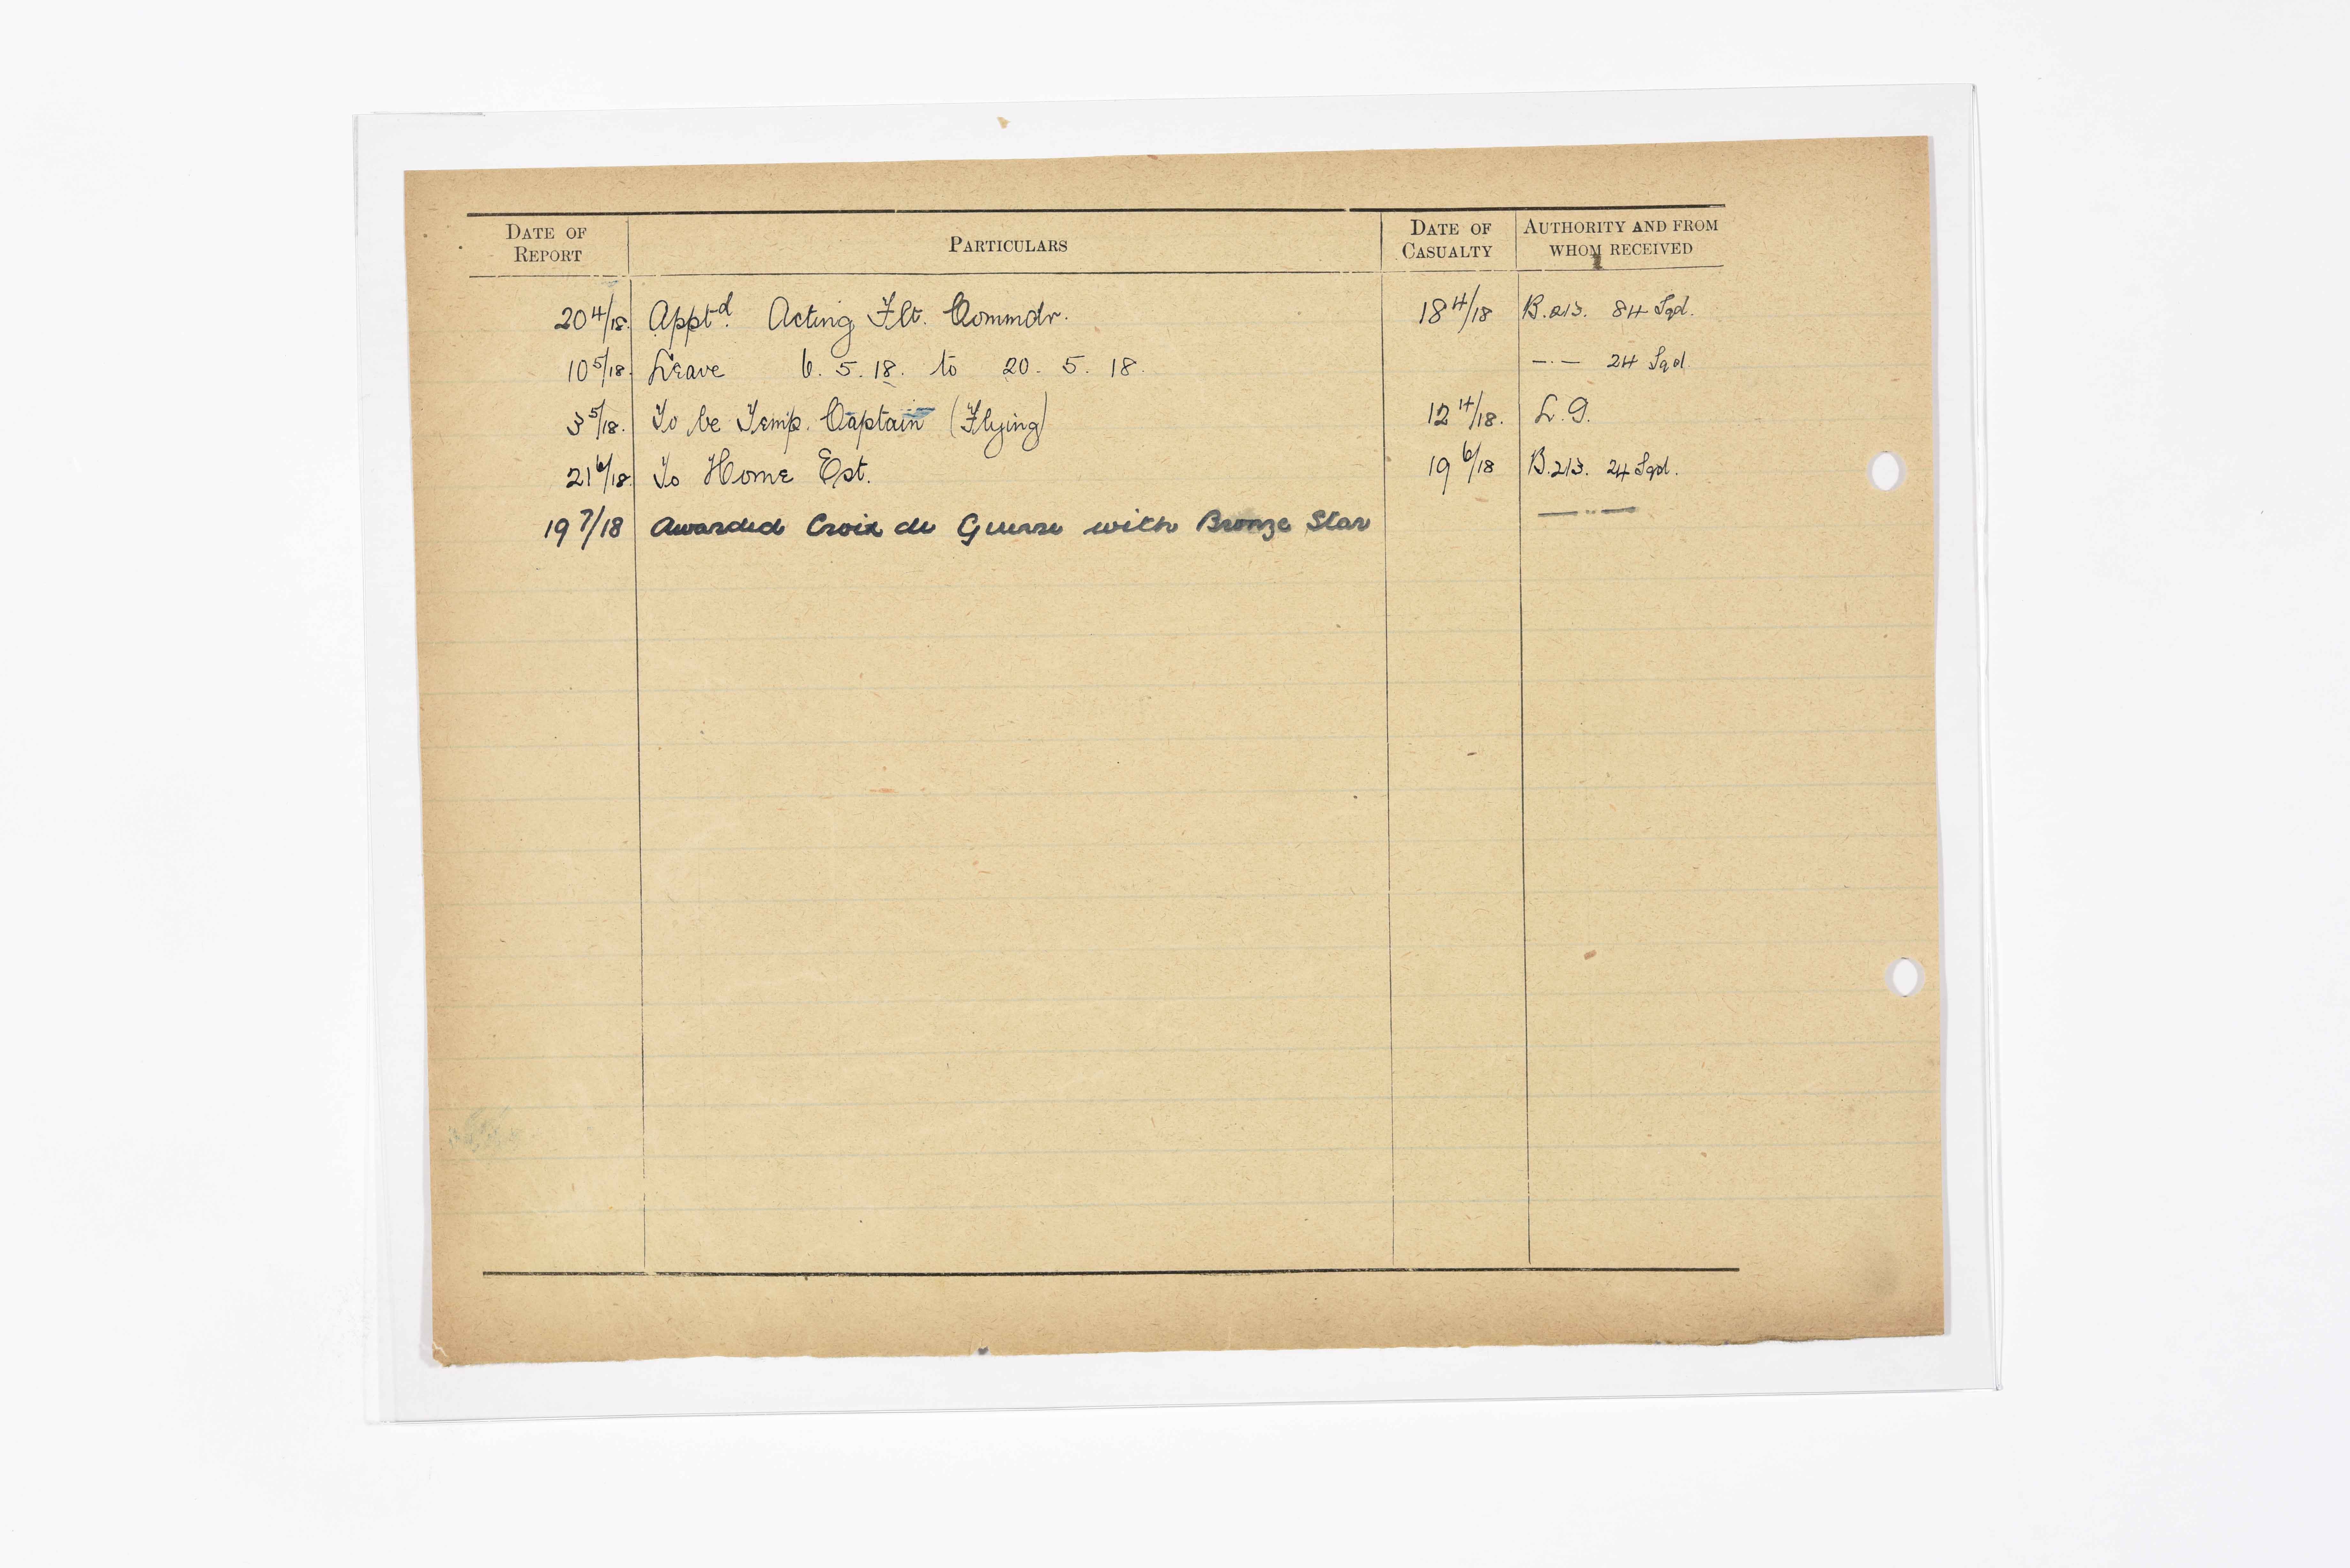 DATE OF REPORT PARTICULARS DATE OF CASUALTY AUTHORITY AND FROM WHOM RECEIVED
20 4/18. Apptd. Acting Flt. Commdr. 18 4/18 B.213. 84 Sqd.
10 5/18. Leave 6. 5. 18. to 20. 5. 18. —·— 24 Sqd.
3 5/18. To be Temp. Captain (Flying) 12 4/18. L. G.
21 6/18. To Home Est. 19 6/18 B.213. 24 Sqd.
19 7/18 Awarded Croix de Guerre with Bronze Star —··—